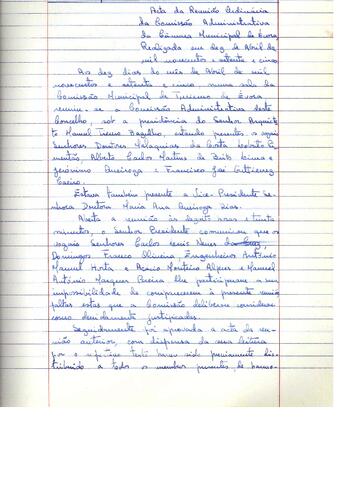 Acta da Reunião Ordinária
da Comissão Administrativa
da Câmara Municipal de Évora
Realizada em dez de Abril de
mil novecentos e setenta e cinco
Aos dez dias do mês de Abril de mil
novecentos e setenta e cinco, numa sala da
Comissão Municipal de Turismo de Évora
reuniu-se a Comissão Administrativa deste
Concelho, sob a presidência do Senhor Arquitec-
to Manuel Bagulho, estando presentes os vogais
Senhores Doutores Malaquias da Costa
Alberto Carlos Martins de Brito Lima e
Jerónimo e Francisco José Gutierrez
Caeiro.
Estava também presente a Vice-Presidente Se-
nhora Doutora Maria Ana Dias.
Aberta a reunião às dezoito horas e trinta
minutos, o Senhor Presidente comunicou que os
vogais Senhores Carlos Neves da Cruz,
Domingos Franco Oliveira, Engenheiros António
Manuel Horta e Acácio Monteiro Alferes e Manuel
António Marques Pereira lhe participaram a sua
impossibilidade de comparecerem à presente reunião
faltas estas que a Comissão deliberou considerar
como devidamente justificadas.
Seguidamente foi aprovada a acta da reu-
nião anterior, com dispensa da sua leitura
por o respectivo texto haver sido previamente dis-
tribuido a todos os membros presentes, de harmo-